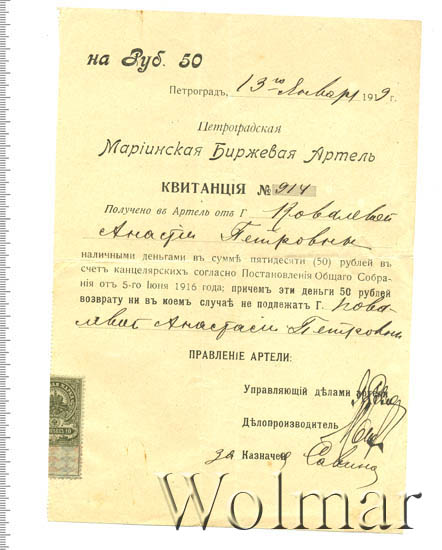 на Руб. 50
Петроградъ, 13го Января 1919 г.
Петроградская
Маріинская Биржевая Артель
КВИТАНЦІЯ № 914
Получено въ Артель отъ Г Ковалевой
Анастасіи Петровны
наличными деньгами въ суммѣ пятидесяти (50) рублей въ
счетъ канцелярскихъ согласно Постановленія Общаго Собра-
нія отъ 5-го Іюня 1916 года; причемъ эти деньги 50 рублей
возврату ни въ коемъ случаѣ не подлежатъ Г. Кова-
левой Анастасіи Петровны
ПРАВЛЕНІЕ АРТЕЛИ:
Управляющій дѣлами артели
Дѣлопроизводитель
за Казначея Савина
Wolmar